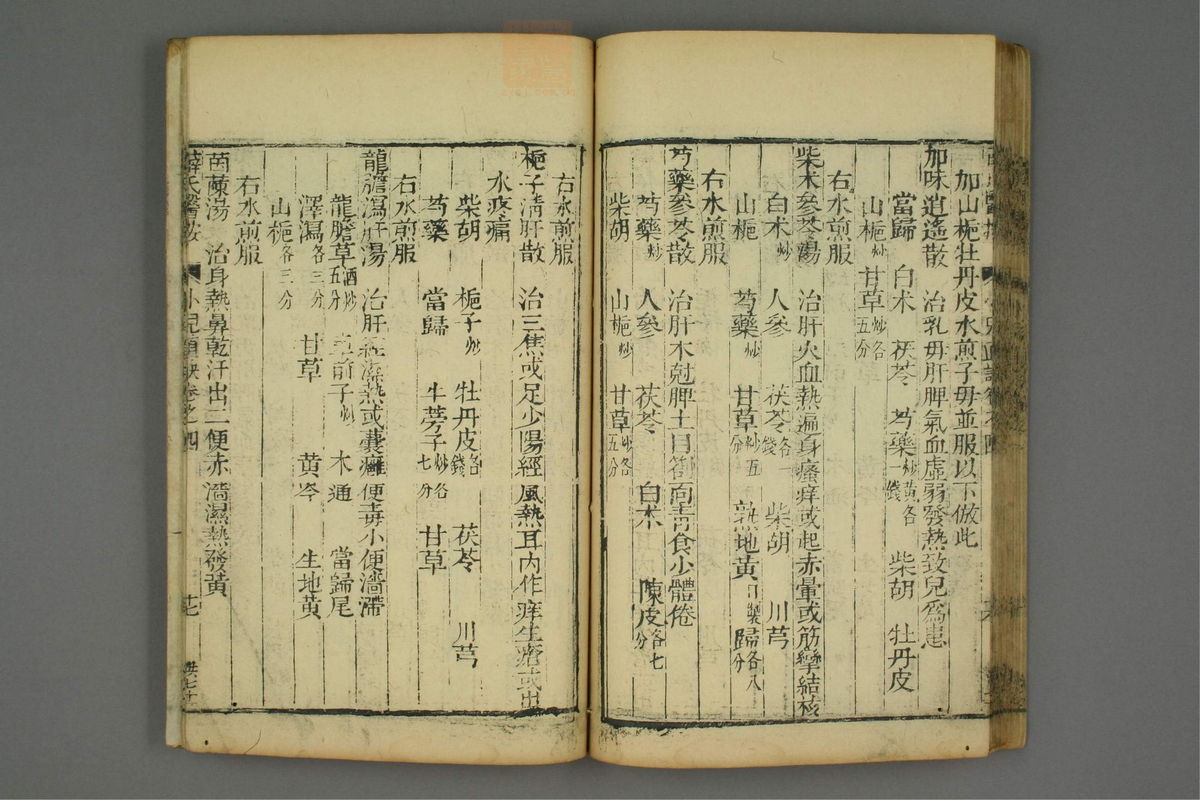 加山梔牡丹皮水煎子母並服以下倣此
加味逍遙散　治乳母肝脾氣血虛弱發熱致兒爲患
當歸　白朮　茯苓　芍藥炒黃各一錢　柴胡　牡丹皮
山梔炒　甘草炒各五分
右水煎服
柴朮參苓湯　治肝火血熱遍身瘙痒或起赤暈或筋攣結核
白朮炒　人參　茯苓各一錢　柴胡　川芎
山梔　芍藥炒　甘草炒五分　熟地黃　歸各八分
右水煎服
芍藥參苓散　治肝木尅脾土目劄面靑食少體倦
芍藥炒　人參　茯苓　白朮　陳皮各七分
柴胡　山梔炒　甘草炒各五分
右水煎服
梔子淸肝散　治三焦或足少陽經風熱耳內作痒生瘡或出
水疼痛
柴胡　梔子炒　牡丹皮各錢　茯苓　川芎
芍藥　當歸　牛蒡子炒各七分　甘草
右水煎服
龍膽瀉肝湯　治肝經濕熱或囊癰便毒小便濇滯
龍膽草酒炒五分　車前子炒　木通　當歸尾
澤瀉各三分　甘草　黃芩　生地黃
山梔各三分
右水煎服
茵蔯湯　治身熱鼻乾汗出二便赤濇濕熱發黃
薛氏醫按　小兒直訣卷之四　十七